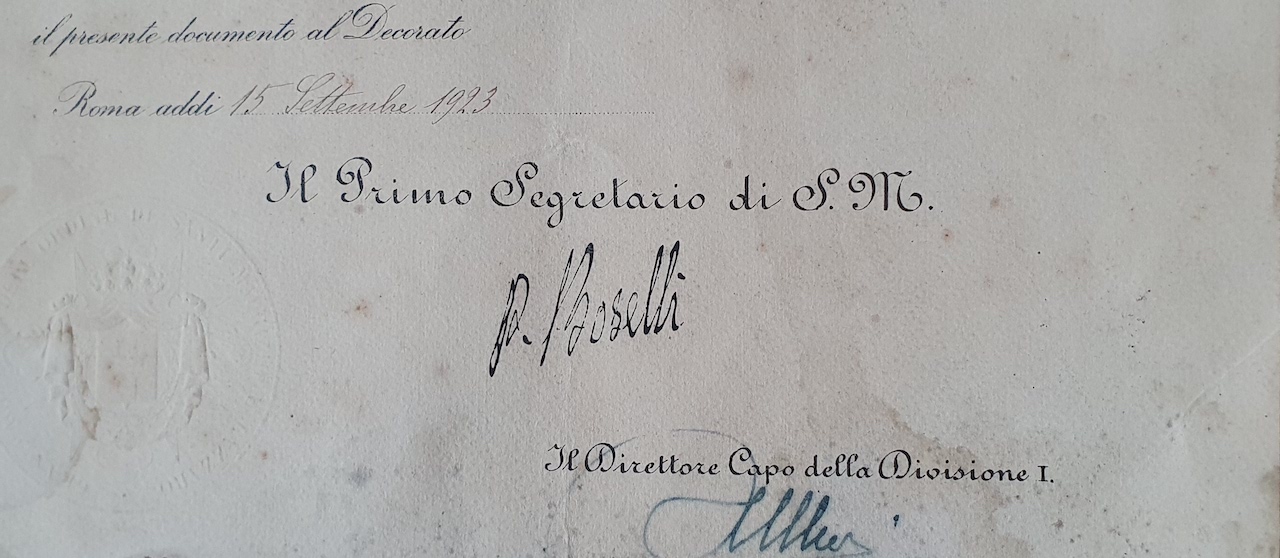 il presente documento al Decorato
Roma addi 15 Settembre 1923
Il Primo Segretario di S. M.
P. Boselli
Il Direttore Capo della Divisione I.